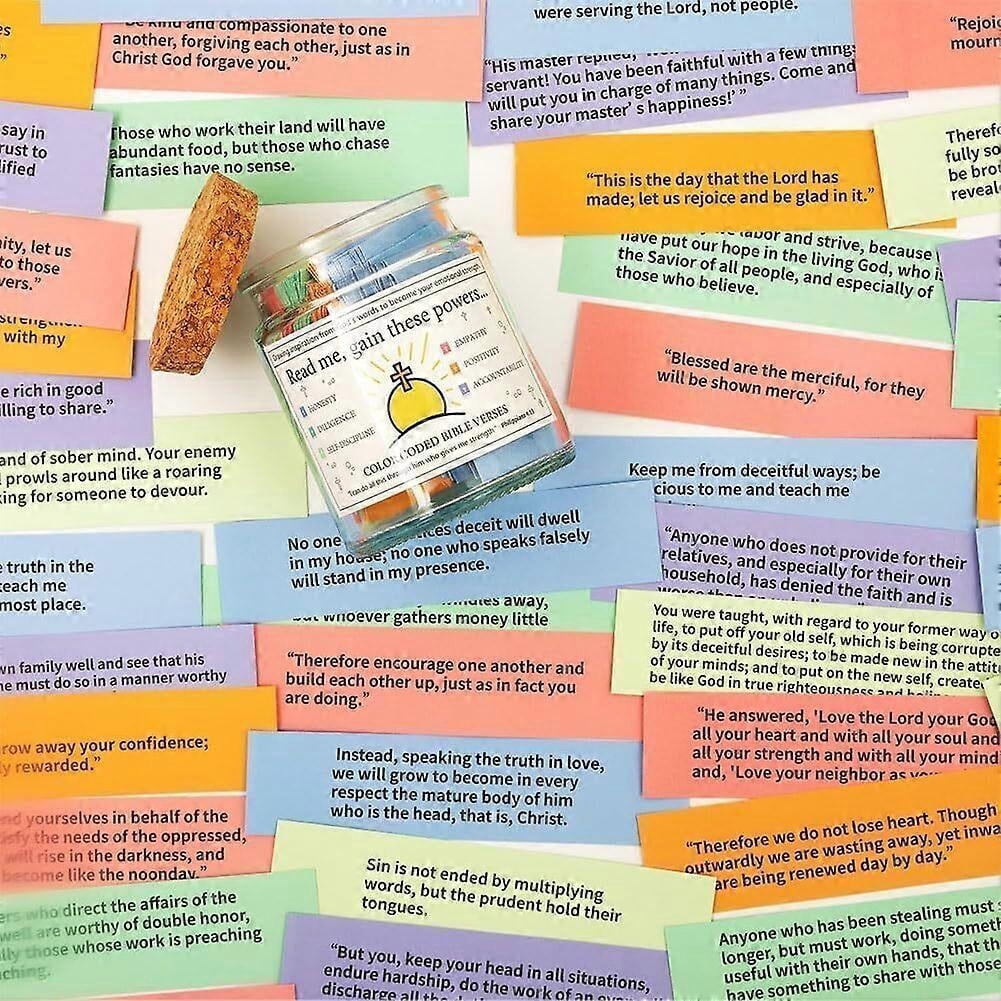 were serving the Lord, not people.
Be kind and compassionate to one
another, forgiving each other, just as in
Christ God forgave you.”
“Rejoi
mourn
“His master replied,
servant! You have been faithful with a few things
will put you in charge of many things. Come and
share your master’ s happiness!’ ”
say in
rust to
lified
Those who work their land will have
abundant food, but those who chase
fantasies have no sense.
“This is the day that the Lord has
made; let us rejoice and be glad in it.”
Theref
fully so
be brou
reveale
nity, let us
to those
vers.”
labor and strive, because
have put our hope in the living God, who i
the Savior of all people, and especially of
those who believe.
strengthen
with my
“Blessed are the merciful, for they
will be shown mercy.”
Drawing inspiration from God's words to become your emotional strength
Read me, gain these powers...
HONESTY
DILIGENCE
SELF-DISCIPLINE
EMPATHY
POSITIVITY
ACCOUNTABILITY
COLOR CODED BIBLE VERSES
"I can do all this through him who gives me strength" Philippians 4:13
e rich in good
illing to share.”
and of sober mind. Your enemy
prowls around like a roaring
king for someone to devour.
Keep me from deceitful ways; be
cious to me and teach me
No one
ices deceit will dwell
in my house; no one who speaks falsely
will stand in my presence.
“Anyone who does not provide for their
relatives, and especially for their own
household, has denied the faith and is
worse than
e truth in the
teach me
most place.
dwindles away,
but whoever gathers money little
You were taught, with regard to your former way o
life, to put off your old self, which is being corrupte
by its deceitful desires; to be made new in the attit
of your minds; and to put on the new self, create
be like God in true righteousness and holin
wn family well and see that his
he must do so in a manner worthy
“Therefore encourage one another and
build each other up, just as in fact you
are doing.”
“He answered, 'Love the Lord your God
all your heart and with all your soul and
all your strength and with all your mind
and, 'Love your neighbor as
row away your confidence;
ly rewarded.”
Instead, speaking the truth in love,
we will grow to become in every
respect the mature body of him
who is the head, that is, Christ.
nd yourselves in behalf of the
isfy the needs of the oppressed,
will rise in the darkness, and
become like the noonday.”
“Therefore we do not lose heart. Though
outwardly we are wasting away, yet inwa
are being renewed day by day.”
Sin is not ended by multiplying
words, but the prudent hold their
tongues.
ers who direct the affairs of the
well are worthy of double honor,
lly those whose work is preaching
ching.
Anyone who has been stealing must
longer, but must work, doing someth
useful with their own hands, that th
have something to share with those
“But you, keep your head in all situations,
endure hardship, do the work of an
discharge all the